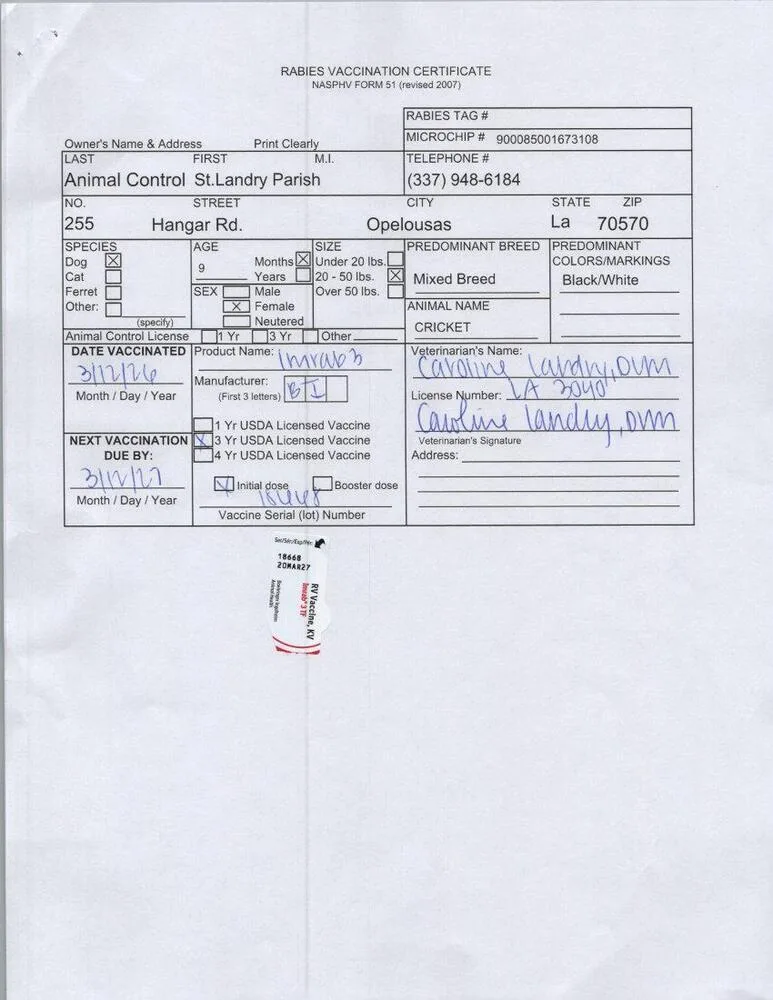 RABIES VACCINATION CERTIFICATE
NASPHV FORM 51 (revised 2007)
RABIES TAG #
MICROCHIP # 900085001673108
Owner's Name & Address Print Clearly
LAST FIRST M.I. TELEPHONE #
Animal Control St.Landry Parish (337) 948-6184
NO. STREET CITY STATE ZIP
255 Hangar Rd. Opelousas La 70570
SPECIES AGE SIZE PREDOMINANT BREED PREDOMINANT
COLORS/MARKINGS
Dog 9 Months Under 20 lbs.
Cat Years 20 - 50 lbs. Mixed Breed Black/White
Ferret SEX Male Over 50 lbs.
Other: Female ANIMAL NAME
(specify) Neutered CRICKET
Animal Control License 1 Yr 3 Yr Other
DATE VACCINATED Product Name: Imrab 3 Veterinarian's Name:
3/12/26 Caroline Landry, DVM
Month / Day / Year Manufacturer: License Number: LA 3040
(First 3 letters) BI
1 Yr USDA Licensed Vaccine Caroline Landry, DVM
NEXT VACCINATION 3 Yr USDA Licensed Vaccine Veterinarian's Signature
DUE BY: 4 Yr USDA Licensed Vaccine Address:
3/12/27
Month / Day / Year Initial dose Booster dose
Vaccine Serial (lot) Number
18668
20MAR27
RV Vaccine, KV
Imrab® 3 TF
Boehringer Ingelheim
Animal Health